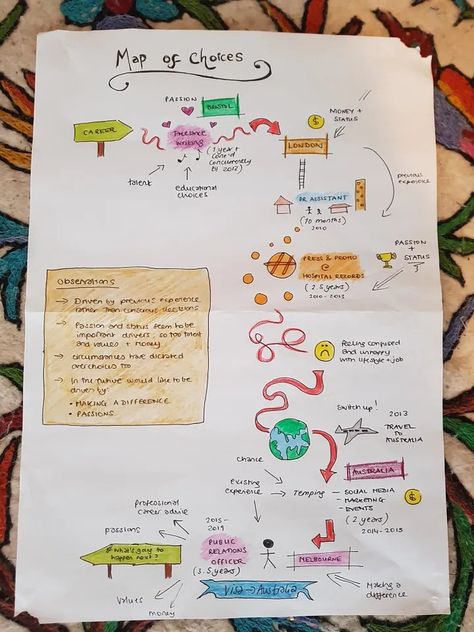 Map of Choices
PASSION
BRISTOL
MONEY +
STATUS
CAREER
Freelance
writing
LONDON
(1 year +
Cont'd
concurrently
by 2012)
previous
experience
talent
educational
choices
PR ASSISTANT
(10 months)
2010
PASSION
+
STATUS
PRESS & PROMO
@
HOSPITAL RECORDS
(2.5 years)
2010-2013
Observations
→ Driven by previous experience
rather than conscious decisions
→ Passion and status seem to be
important drivers, so too talent
and values + money
→ circumstances have dictated
over choices too
→ In the future would like to be
driven by:
• MAKING A DIFFERENCE
• PASSIONS
Feeling confused
and unhappy
with lifestyle + job
Switch up!
2013
TRAVEL
TO
AUSTRALIA
chance
AUSTRALIA
existing
experience → Temping
- SOCIAL MEDIA
- MARKETING
- EVENTS
(2 years)
2014-2015
professional
career advice
2015-
2019
passions
PUBLIC
RELATIONS
OFFICER
(3.5 years)
what's going to
happen next?
MELBOURNE
Making a
difference
Visa → Australia
values
money